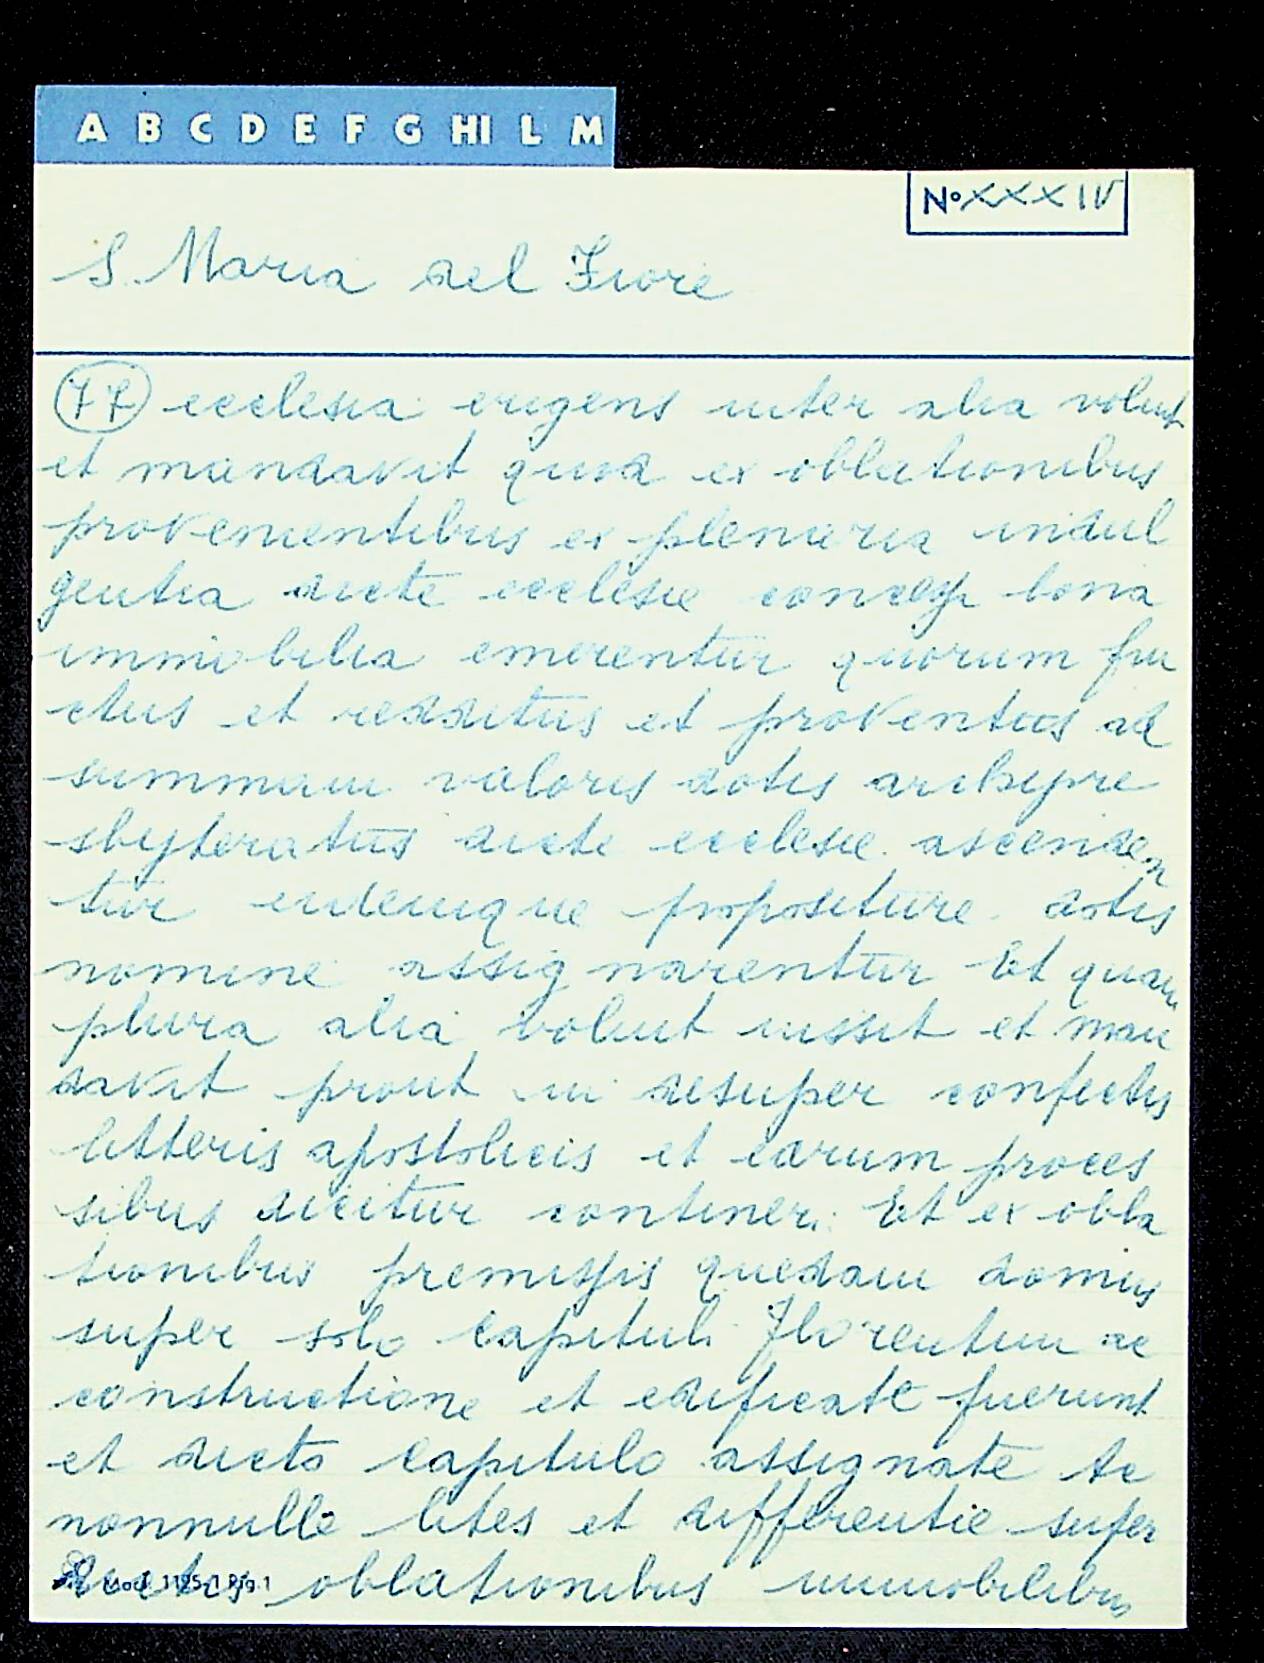 A B C D E F G HI L M
N° XXXIV
S. Maria del Fiore
77 ecclesia erigens inter alia voluit
et mandavit quod ex oblationibus
provenientibus ex plenaria indul
gentia dicte ecclesie concessa bona
immobilia emerentur quorum fru
ctus et redditus et proventus ad
summam valoris dotis archipre
sbyteratus dicte ecclesie ascenden
tur eidemque propositure dotis
nomine assignarentur Et quam
plura alia voluit iussit et man
davit prout in desuper confectis
litteris apostolicis et earum proces
sibus dicitur contineri. Et ex obla
tionibus premissis quedam domus
super solo Capituli Florentini ac
constructione et edificate fuerunt
et dicto Capitulo assignate Ac
nonnulle lites et differentie super
dictis oblationibus immobilibus